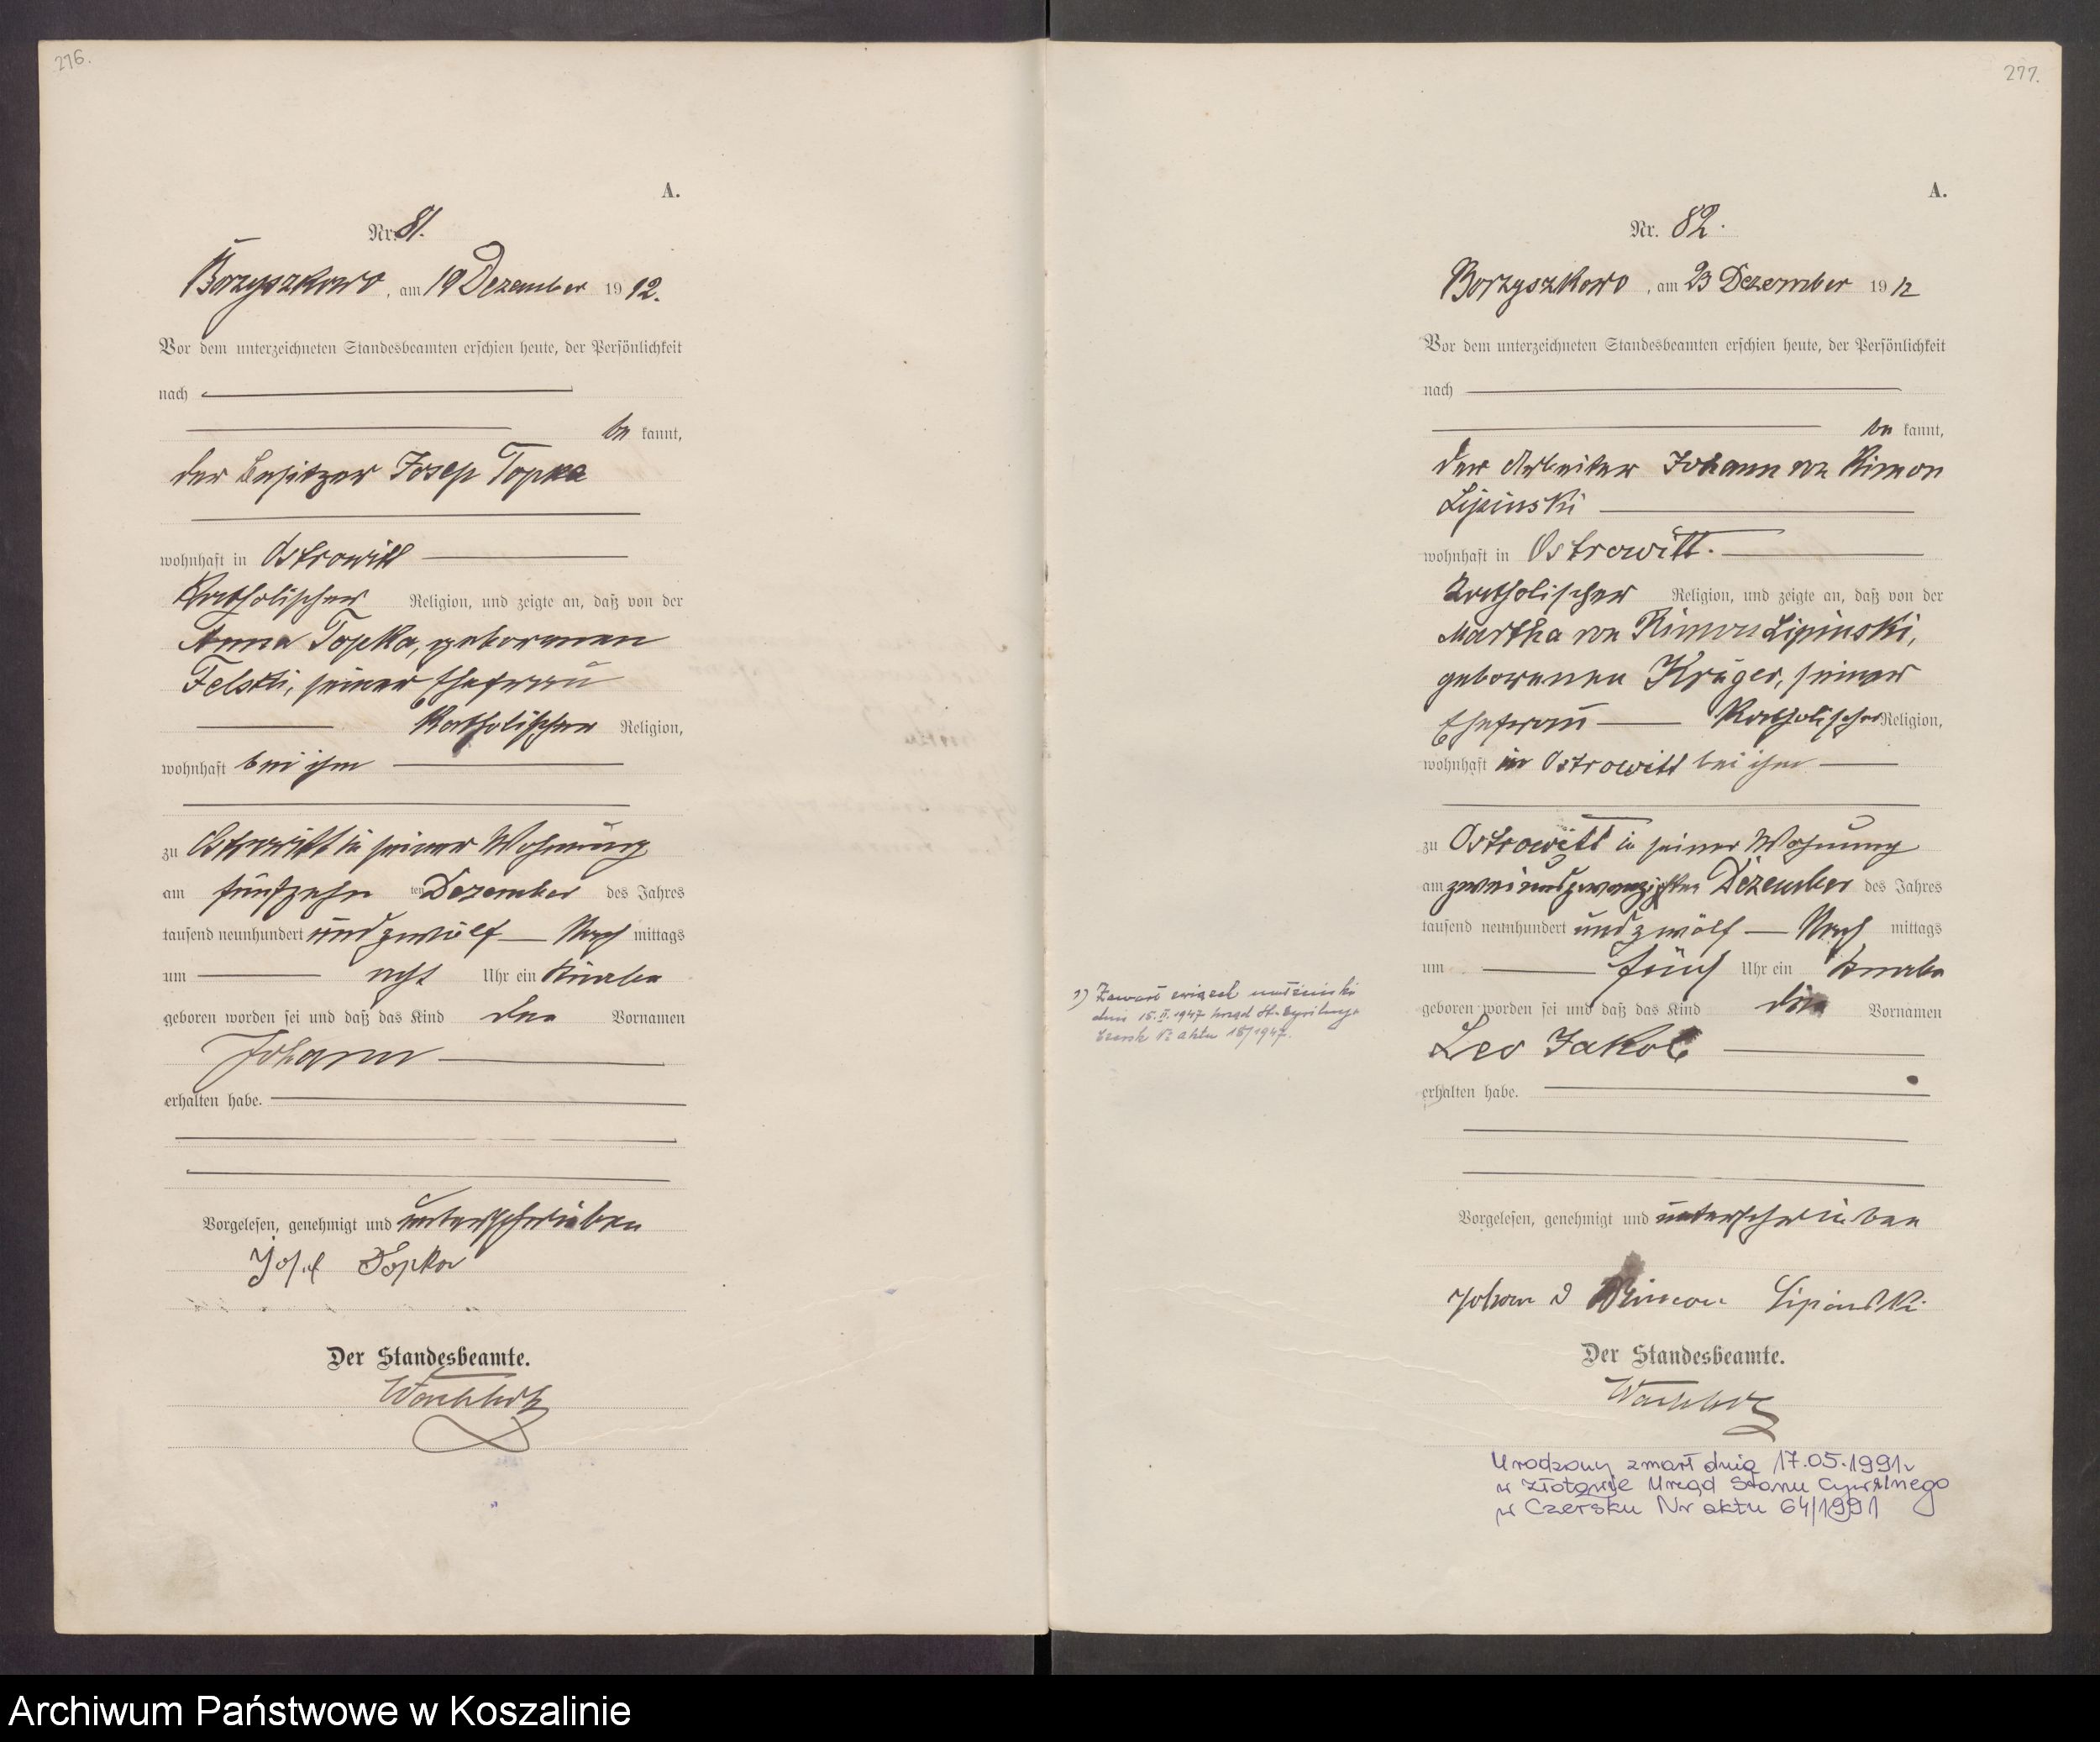 276.
A.
Nr. 81.
Borzyszkowo, am 19 Dezember 1912.
Vor dem unterzeichneten Standesbeamten erschien heute, der Persönlichkeit
nach
be kannt,
der Besitzer Josep Topka
wohnhaft in Ostrowitt
Katholischer Religion, und zeigte an, daß von der
Anna Topka, geborenen
Felski, seiner Ehefrau
Katholischer Religion,
wohnhaft bei ihm
zu Ostrowitt in seiner Wohnung
am fünfzehn ten Dezember des Jahres
tausend neunhundert und zwölf Nach mittags
um acht Uhr ein Knabe
geboren worden sei und daß das Kind den Vornamen
Johann
erhalten habe.
Vorgelesen, genehmigt und unterschrieben
Josef Topka
Der Standesbeamte.
277.
A.
Nr. 82.
Borzyszkowo, am 23 Dezember 1912
Vor dem unterzeichneten Standesbeamten erschien heute, der Persönlichkeit
nach
be kannt,
der Arbeiter Johann von Rimon
Lipinski
wohnhaft in Ostrowitt.
Katholischer Religion, und zeigte an, daß von der
Martha von Rimon Lipinski,
geborenen Krüger, seiner
Ehefrau Katholischer Religion,
wohnhaft in Ostrowitt bei ihm
zu Ostrowitt in seiner Wohnung
am zweiundzwanzigsten Dezember des Jahres
tausend neunhundert und zwölf Nach mittags
um fünf Uhr ein Knabe
geboren worden sei und daß das Kind die Vornamen
Leo Jakob
erhalten habe.
1) Zawarł związek małżeński
dnia 15.II.1947 Urząd St. Cywilnego
Czersk Nr aktu 18/1947.
Vorgelesen, genehmigt und unterschrieben
Johan v Rimon Lipinski
Der Standesbeamte.
Urodzony zmarł dnia 17.05.1991r
w Złotowie Urząd Stanu Cywilnego
w Czersku Nr aktu 64/1991
Archiwum Państwowe w Koszalinie